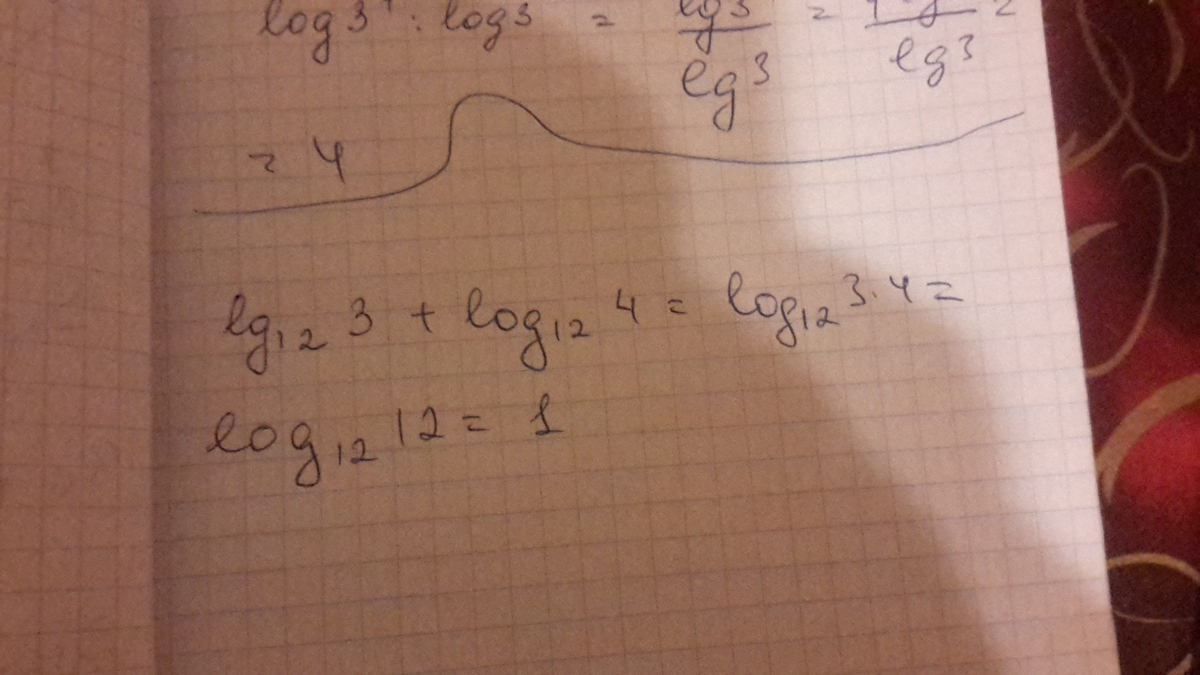 log3⁴ : log3 = lg3 / lg3 = / lg3 =
= 4
lg₁₂ 3 + log₁₂ 4 = log₁₂ 3·4 =
log₁₂ 12 = 1